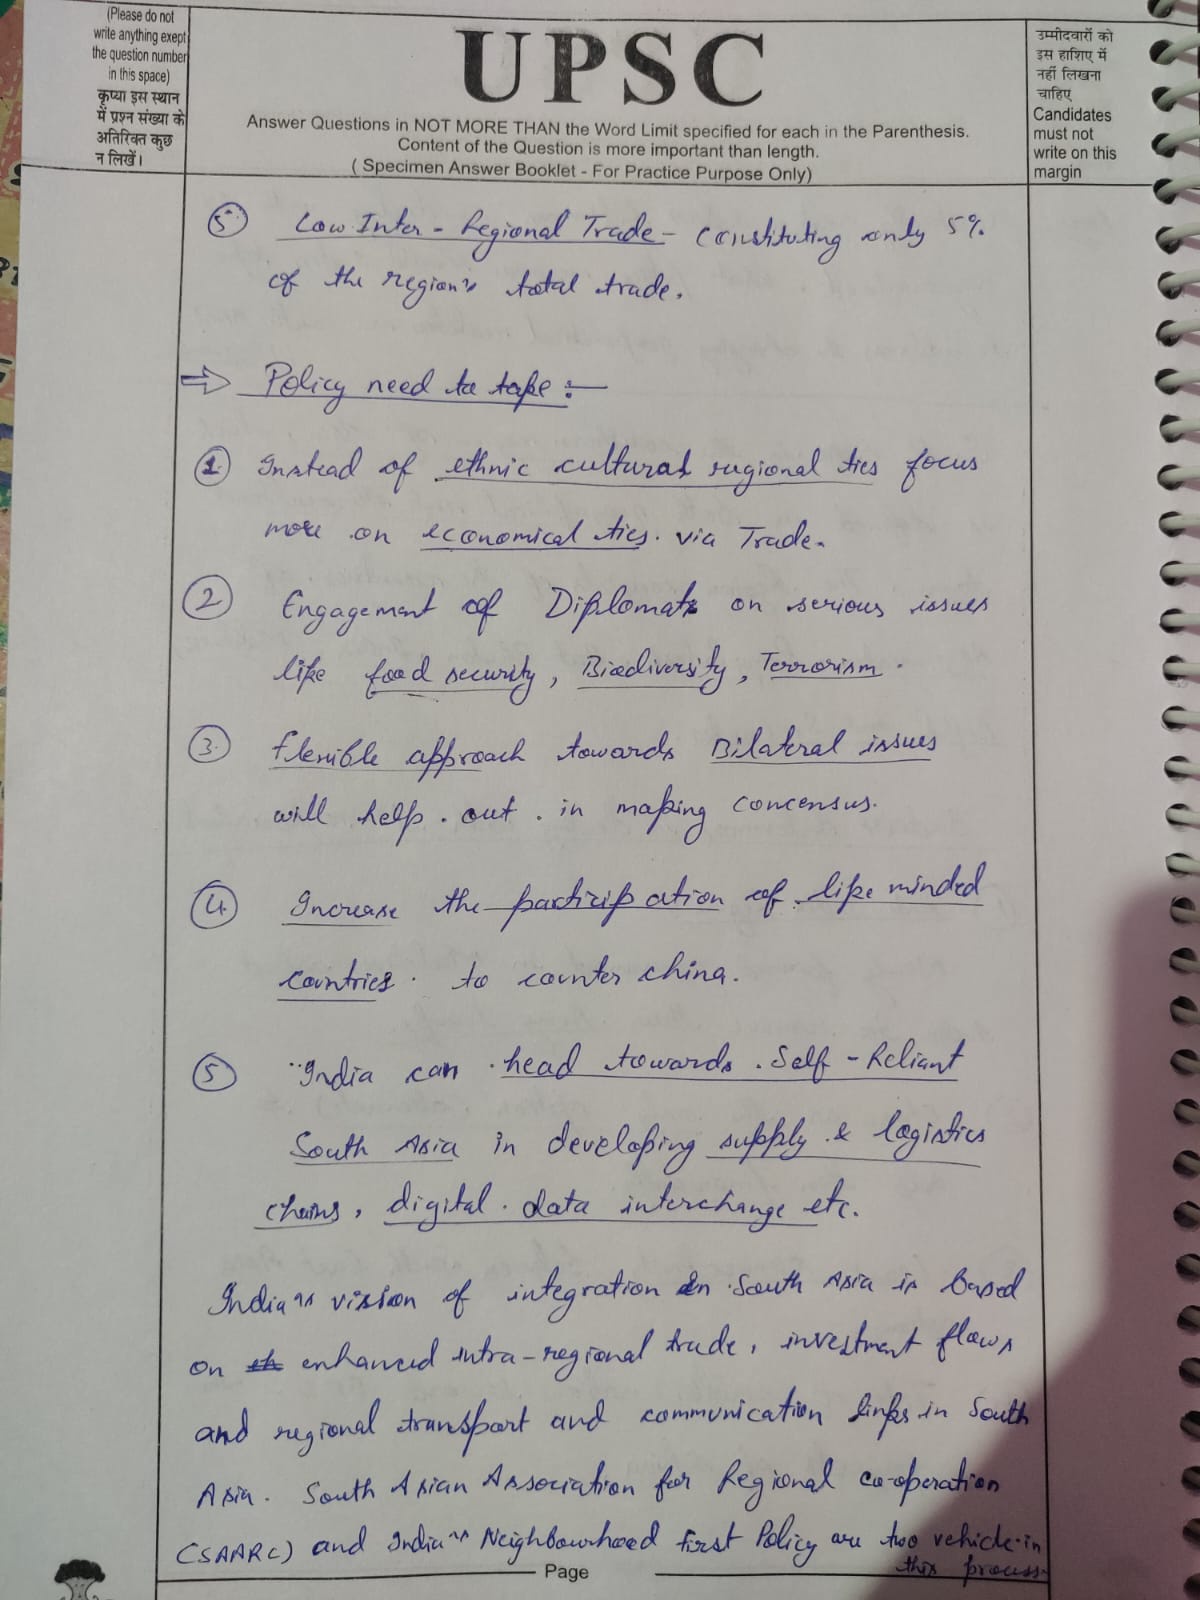 (Please do not
write anything exept
the question number
in this space)
कृप्या इस स्थान
में प्रश्न संख्या के
अतिरिक्त कुछ
न लिखें।
UPSC
Answer Questions in NOT MORE THAN the Word Limit specified for each in the Parenthesis.
Content of the Question is more important than length.
( Specimen Answer Booklet - For Practice Purpose Only)
उम्मीदवारों को
इस हाशिए में
नहीं लिखना
चाहिए
Candidates
must not
write on this
margin
5 Low Inter - Regional Trade - constituting only 5%
of the region's total trade.
⇒ Policy need to take :-
1. Instead of ethnic cultural regional ties focus
more on economical ties. via Trade.
2 Engagement of Diplomats on serious issues
like food security, Biodiversity, Terrorism.
3. flexible approach towards Bilateral issues
will help out in making concensus.
4. Increase the participation of like minded
countries. to counter china.
5 India can head towards Self - Reliant
South Asia in developing supply & logistics
chains, digital data interchange etc.
India's vision of integration in South Asia is based
on enhanced intra-regional trade, investment flows
and regional transport and communication links in South
Asia. South Asian Association for Regional co-operation
(SAARC) and India's Neighbourhood first Policy are two vehicle in
this process.
Page